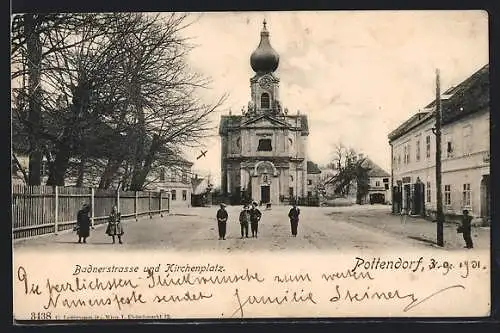 Badnerstrasse und Kirchenplatz.
Pottendorf, 3.9. 1901.
Die herzlichsten Glückwünsche zum werten
Namensfeste sendet Familie Steiner
3438 Wien I. Fleischmarkt